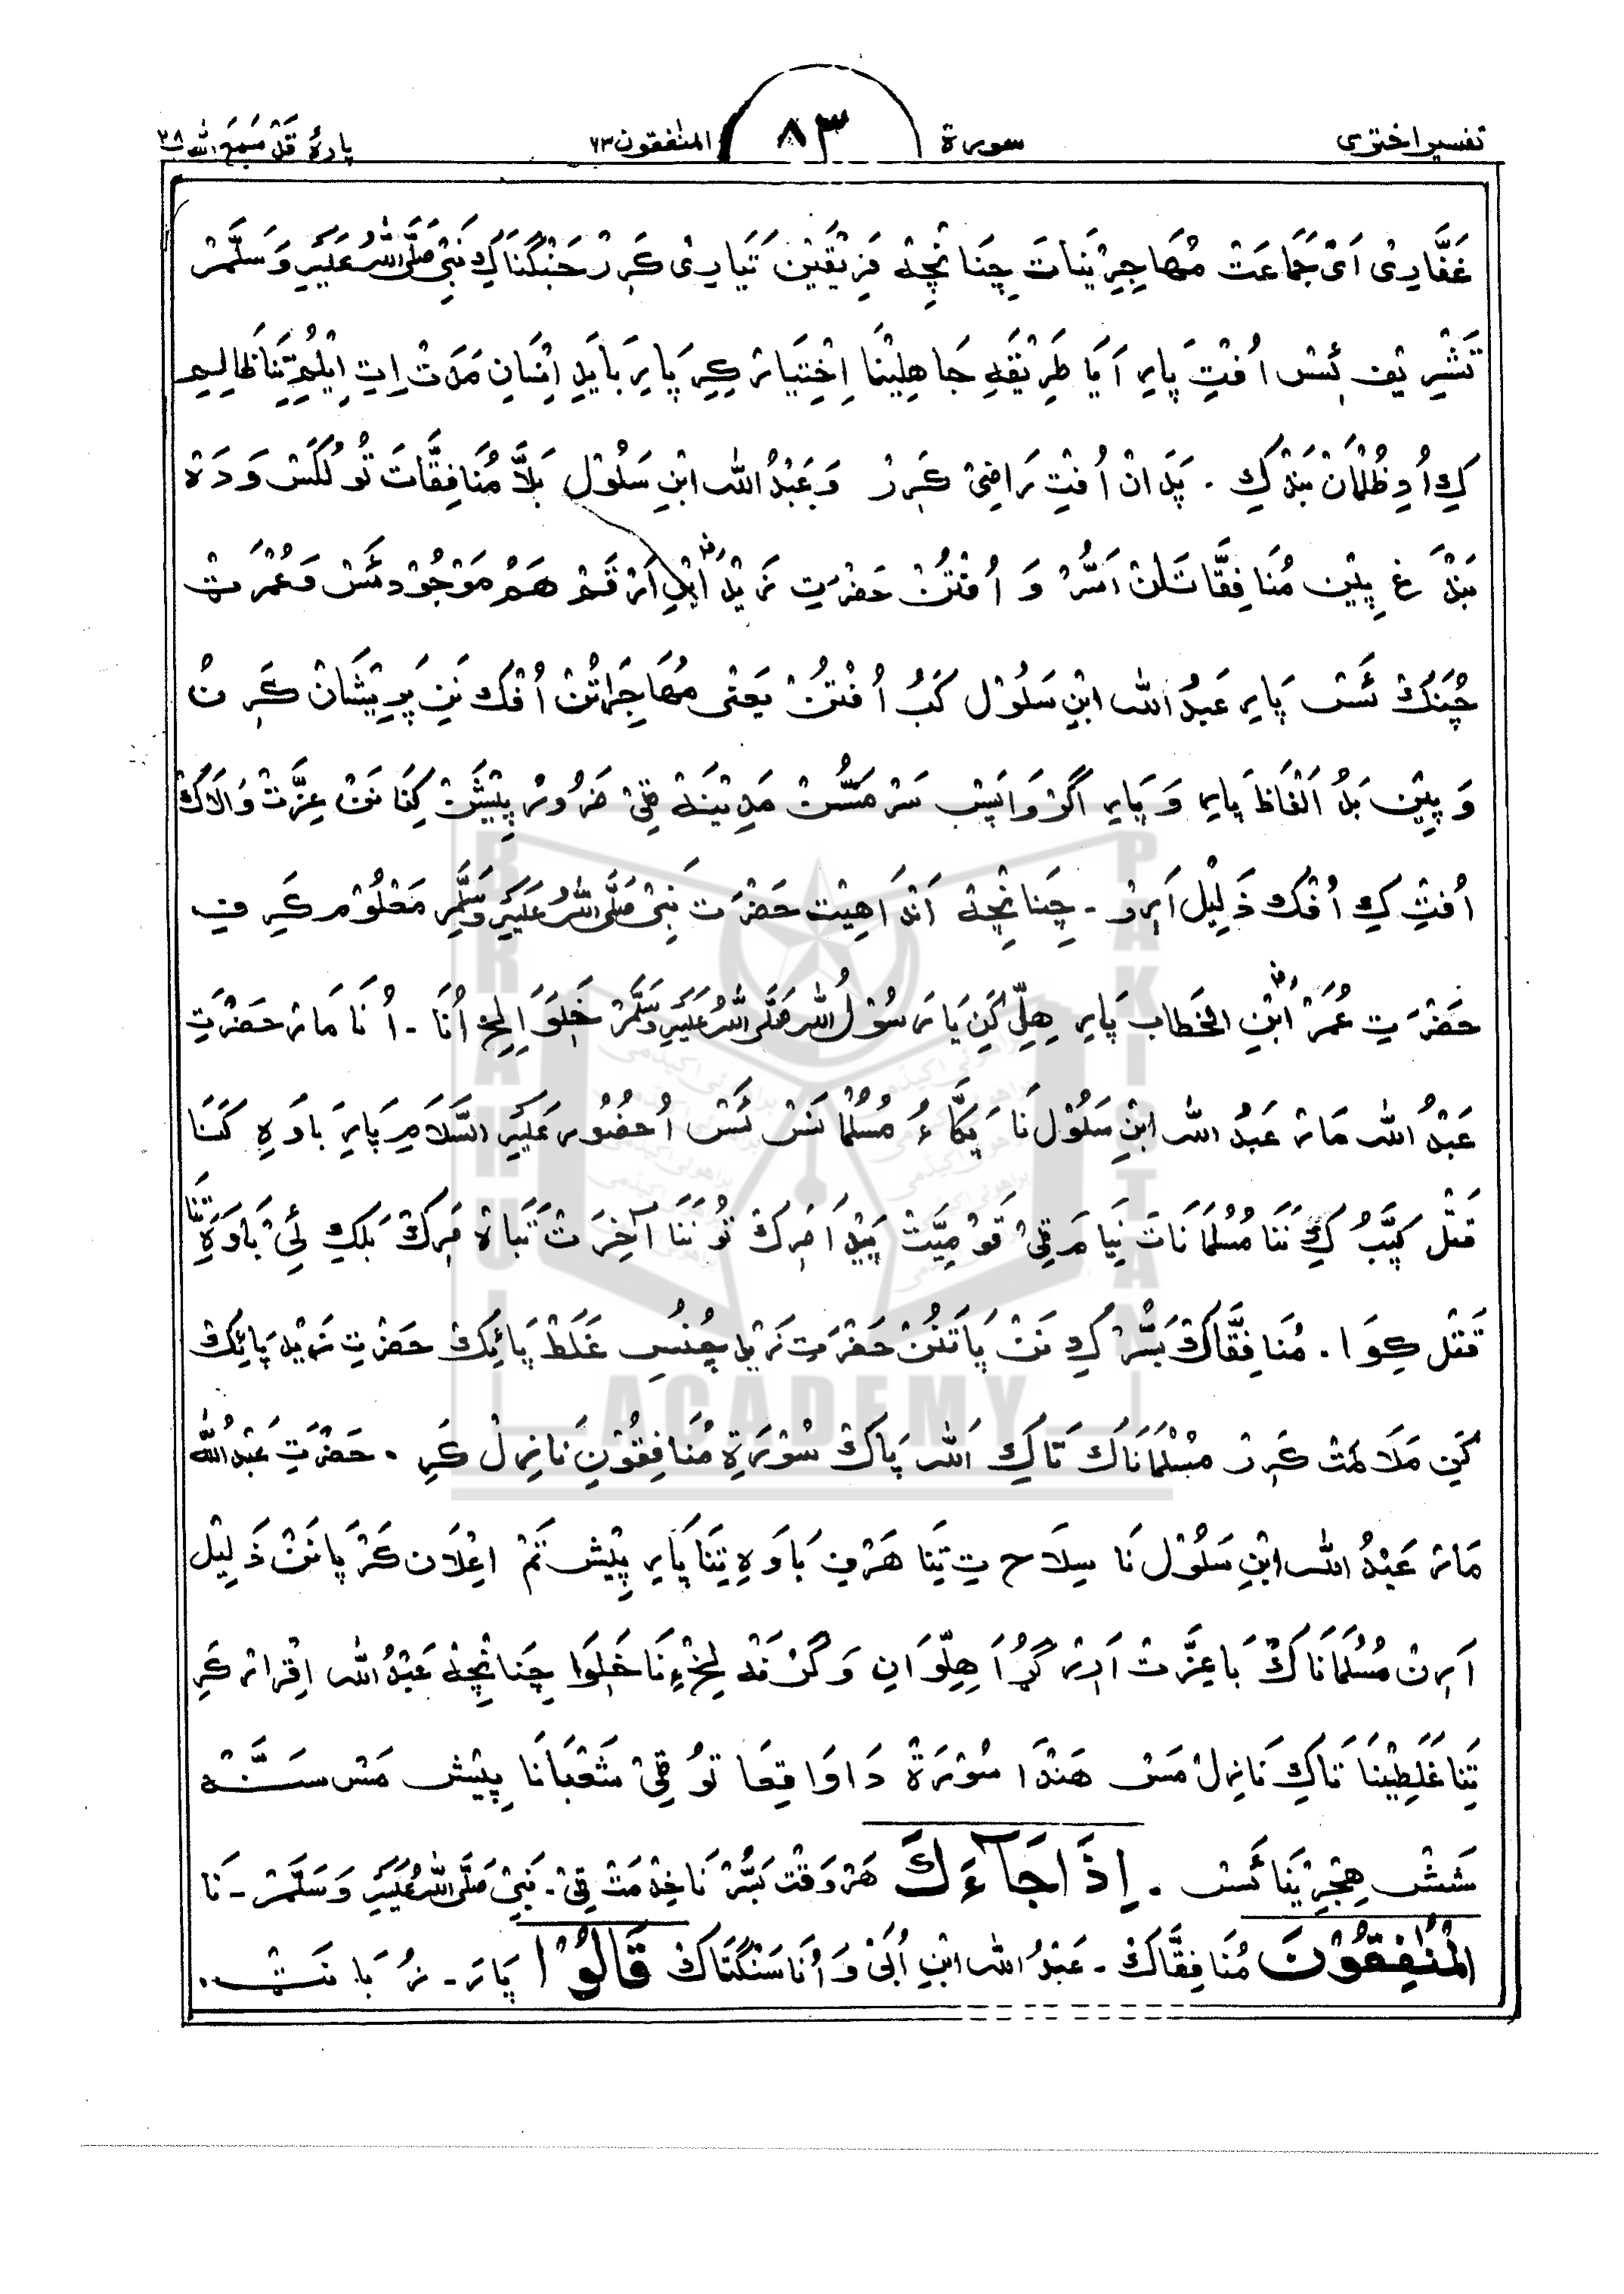 تفسیر اختری
سورة
۸۳
المنٰفقون ۶۳
پارۀ قَدْ سَمِعَ اللّٰه ۲۸
غَفَّارِیْ اَیْ جَمَاعَتْ مُهَاجِرِیْنَاتَ چِنَانْچِهْ فَرِیْقَیْن تَیَّارِیْ کَرِرْ جَنْگنَا کِ نَبِیْ صَلَّی اللّٰهُ عَلَیْهِ وَسَلَّمْ
تَشْرِیْف ئَسْ اُفْتِ پَارِ اَیَا طَرِیْقَهِ جَاهِلِیْنَا اِخْتِیَارْ کِرِ پَارِ بَایَدِ اِنْسَانِ مَدَتْ اِتِ اِیْلُمِ تِنَا ظَالِیِم
کِ اُدِ ظُلْمَانْ بَنْدْ کِ . پَدَ انْ اُفْتِ رَاضِیْ کَرِرْ وَعَبْدُ اللّٰه ابْنِ سَلُوْل بَلَّا مُنَافِقَّاتَ تُو لُکَسْ وَ دَهْ
بَنْدَغ پِیْن مُنَافِقَّاتَانْ اَسُّرْ وَ اُفْتُنْ حَضْرَتِ زَیْدْ اَرْقَمْ هَمْ مَوْجُوْد ئَسْ وَعُمْرَتْ
چُنَکْ ئَسْ پَارِ عَبْدُ اللّٰه ابْنِ سَلُوْل کَبُ اُفْتُنْ یَعْنِی مُهَاجِرَاتُنْ اُفْکْ نَنِ پَرِیْشَانْ کَرِنُ
وَ پِیْن بَدُ اَلْفَاظَ پَارِ وَ پَارِ اَگرْ وَاپَسْ سَرْ مَسُّتْ مَدِیْنَهْ قِیْ ضَرُوْرْ پِیْشَتْ کِنَا نَنْ عِزَّتْ وَالَاکْ
اُفْتِ کِ اُفْکْ ذَلِیْل اَرِرْ - چِنَانْچِهْ اَنْدَ اهِیْت حَضْرَتِ نَبِیْ صَلَّی اللّٰهُ عَلَیْهِ وَسَلَّمِ مَعْلُوْم کَرِفِ
حَضْرَتِ عُمَرْ ابْنِ الخطاب پَارِ هِلِّ کَنِ یَا رَسُوْلُ اللّٰهِ صَلَّی اللّٰهُ عَلَیْهِ وَسَلَّمْ خَلِوَ لِخْ اُنَا - اُنَا مَارْ حَضْرَتِ
عَبْدُ اللّٰه مَارْ عَبْدُ اللّٰه ابْنِ سَلُوْل نَا پَکَّاءُ مُسُلْمَانَسْ ئَسْ اُ حُضُوْر عَلَیْهِ السَّلَامِ پَارِ بَاوَهِ کَنَا
قَتْل کَپَّبُ کِ نَنَا مُسُلْمَانَاتَ نِیَامْ قِیْ قَوْمِیَّتْ پَیْدَا مَرِکْ تُو نَنَا آخِرَتْ تَبَاهْ مَرِکْ بَلْکِ ئِیْ بَاوَهِ تِنَا
قَتْل کِوَا . مُنَافِقَّاکْ بَسُّرْ کِ نَنْ پَاتَنُنْ حَضْرَتِ زَیْدْ چُنَسِ غَلَطْ پَائِکْ حَضْرَتِ زَیْد پَائِکْ
کَنِ مَلَامَتْ کَرِرْ مُسُلْمَانَاکْ تَاکِ اَللّٰه پَاکْ سُوْرَةِ مُنَافِقُوْنِ نَازِلْ کَرِ . حَضْرَتِ عَبْدُ اللّٰه
مَارْ عَبْدُ اللّٰه ابْنِ سَلُوْل نَا سِلَاح تِ تِنَا هَرْفِ بَاوَهِ تِنَا پَارِ پِیْش تَمْ اِعْلَان کَرْ پَا نَنْ ذَلِیْل
اَرِنْ مُسُلْمَانَاکْ بَا عِزَّتْ اَرِرْ گُڑَا هِلِّوَانِ وَ گَنْ نَهْ لِخْءِ نَا خَلِوَا چِنَانْچِهْ عَبْدُ اللّٰه اِقْرَارْ کَرِ
تِنَا غَلَطِیْنَا تَاکِ نَازِلْ مَسْ هَنْدَا سُوْرَةْ دَا وَاقِعَا تُو قِیْ شَعْبَانَا پِیْش مَسْ سَنَّهْ
شَشْ هِجْرِیْنَا ئَسْ . اِذَا جَآءَكَ هَرْوَقْت بَسُّرْ نَا خِدْمَتْ قِیْ - نَبِیْ صَلَّی اللّٰهُ عَلَیْهِ وَسَلَّمْ - نَا
الْمُنٰفِقُوْنَ مُنَافِقَّاکْ - عَبْدُ اللّٰه ابْنِ اُبَیْ وَ اُنَا سَنْگتَاکْ قَالُوْا پَارَ -